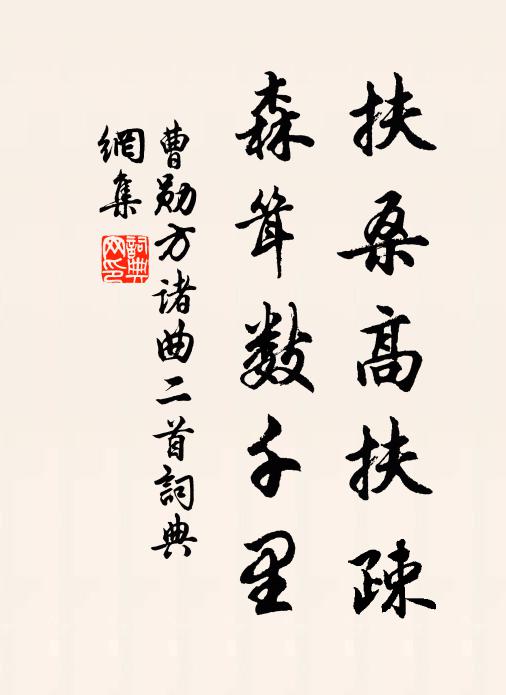 扶桑高扶疎
森耸數千里
曹勛方諸曲二首詞典
網集
詞典
网印